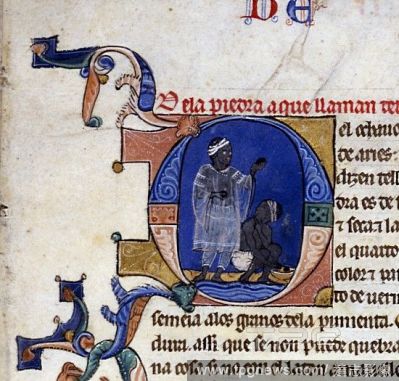 DE
Dela piedra aque llaman tel
el ochauo
de aries
dizen tell
dra es de
& seca & la
el quarto
color & pu
to de uerm
semeia alos granos dela pimenta.
dura. assi que se non puede quebra
na cosa si non